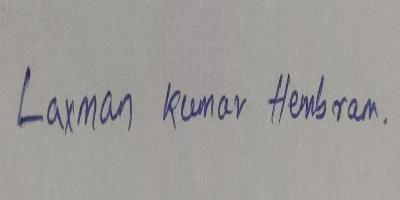 Laxman Kumar Hembram.